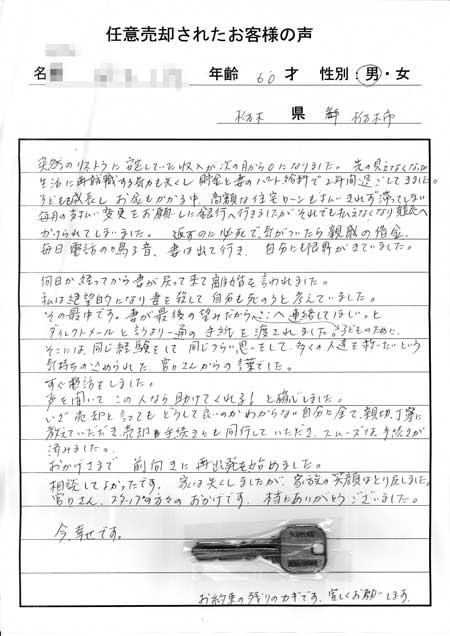 任意売却されたお客様の声
名 年齢 60 才 性別：男・女
栃木 県 栃木市
突然のリストラに安定していた収入が次の月から0になりました。先の見えなくなった
生活に再就職する気力も失くし貯金と妻のパート給料で2年間過ごしてきました。
子ども成長しお金もかかる中、高額な住宅ローンも払いきれず滞ってしまい
毎月の支払い変更をお願いしに銀行へ行きましたがそれでも払えなくなり競売へ
かけられてしまいました。返すのに必死で気がついたら親戚の借金、
毎日電話の鳴る音、妻は出て行き、自分にも限界がきていました。
何日か経ってから妻が戻って来て離婚を言われました。
私は絶望的になり妻を殺して自分も死のうと考えていました。
その最中です。妻が最後の望みだからここへ連絡してほしいと
ダイレクトメールと言うより一通の手紙を渡されました。子どものために、
そこには同じ経験をして同じつらい思いをして、多くの人達を救いたいという
気持ちの込められた、宮口さんからの言葉でした。
すぐ電話をしました。
声を聞いて この人なら助けてくれる！と確信しました。
いざ売却と言ってもどうして良いのかわからない自分に全て、親切、丁寧に
教えていただき、売却の手続きにも同行していただき、スムーズな手続きが
済みました。
おかげさまで 前向きに再出発を始めました。
相談してよかったです。家は失くしましたが、家族の笑顔はとり戻しました。
宮口さん、スタッフの方々のおかげです。本当にありがとうございました。
今、幸せです。
お約束の残りのカギです。宜しくお願いします。